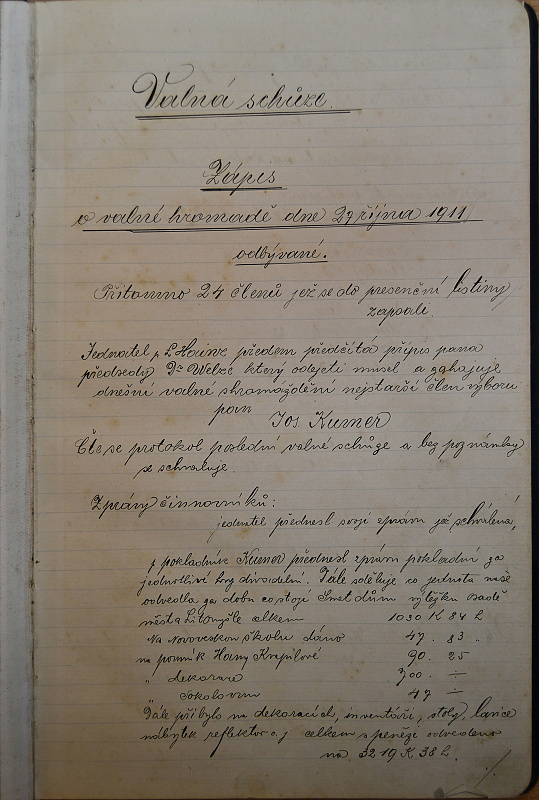 Valná schůze.
Zápis
o valné hromadě dne 27 října 1911
odbývané.
Přítomno 24 členů jež se do presenční listiny
zapsali.
Jednatel p. předem předčítá přípis pana
předsedy Dr který odejeti musel a zahajuje
dnešní valné shromáždění nejstarší člen výboru
pan
Jos. Kumer
Čte se protokol poslední valné schůze a bez poznámky
se schvaluje
Zprávy činnovníků:
jednatel přednesl svoji zprávu jež schválena,
p pokladník Kumer přednesl zprávu pokladní za
jednotlivé hry divadelní. Dále sděluje co jednota naše
odvedla za dobu co stojí Smet. dům výtěžku radě
města Litomyšle celkem 1030 K 84 h
Na školu dáno 47 . 83 „
na pomník Hany Kvapilové 90 . 25
„ dekorace 700 . ÷
„ Sokolovnu 47 ÷
Dále přibylo na dekoracích, inventáři, stoly, lavice
nábytek reflektor a j celkem s penězi odvedeno
na 3219 K 38 h.